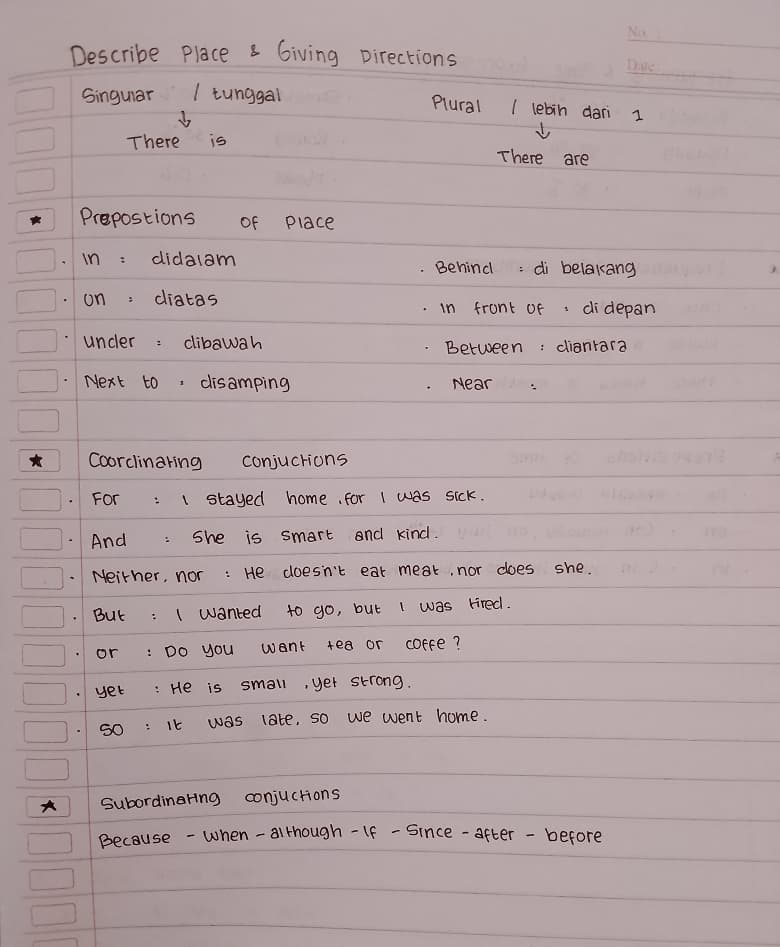 No :
Date
Describe Place & Giving Directions
Singular / tunggal
Plural / lebih dari 1
↓
↓
There is
There are
★ Prepostions of Place
. In : didalam
. Behind : di belakang
. on : diatas
. In front of : di depan
. under : dibawah
. Between : diantara
. Next to : disamping
. Near :
★ Coordinating conjuctions
. For : I stayed home, for I was sick.
. And : She is smart and kind.
. Neither, nor : He doesn't eat meat, nor does she.
. But : I wanted to go, but I was tired.
. or : Do you want tea or coffe?
. yet : He is small, yet strong.
. so : It was late, so we went home.
★ Subordinating conjuctions
Because - when - although - If - Since - after - before